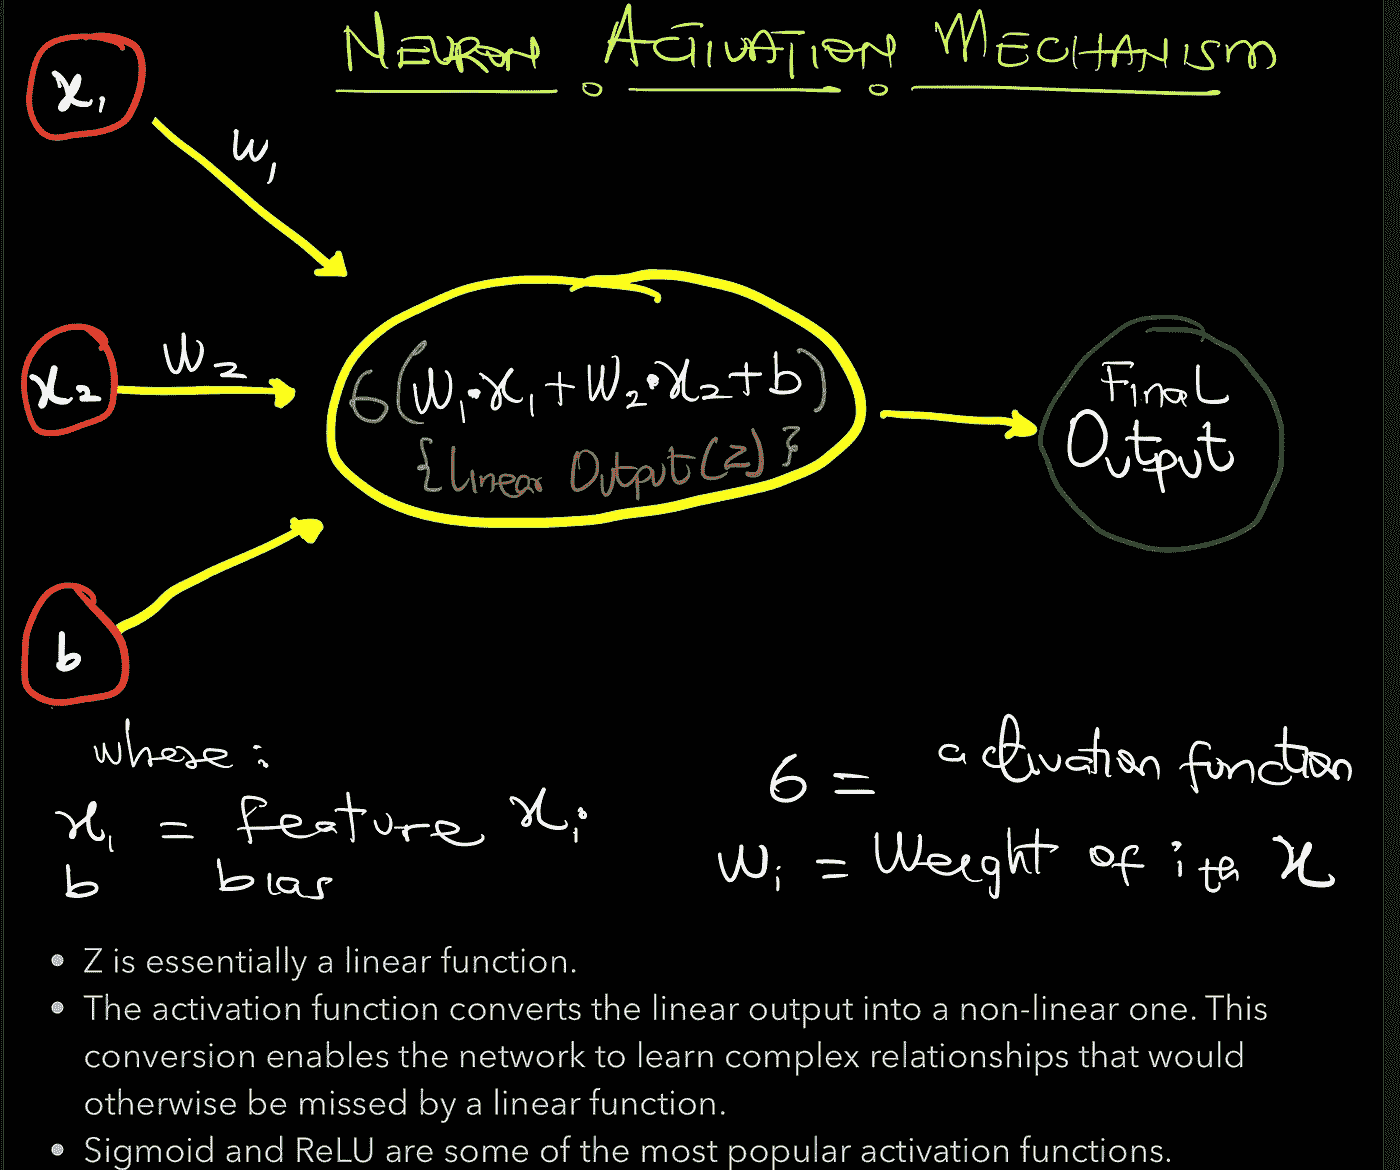 NEURON ACTIVATION MECHANISM
x₁
w₁
x₂
w₂
6(w₁·x₁+w₂·x₂+b)
{Linear Output(z)}
Final
Output
b
where:
x₁ = feature xᵢ
b bias
6 = activation function
wᵢ = Weight of i th x
• Z is essentially a linear function.
• The activation function converts the linear output into a non-linear one. This
conversion enables the network to learn complex relationships that would
otherwise be missed by a linear function.
• Sigmoid and ReLU are some of the most popular activation functions.